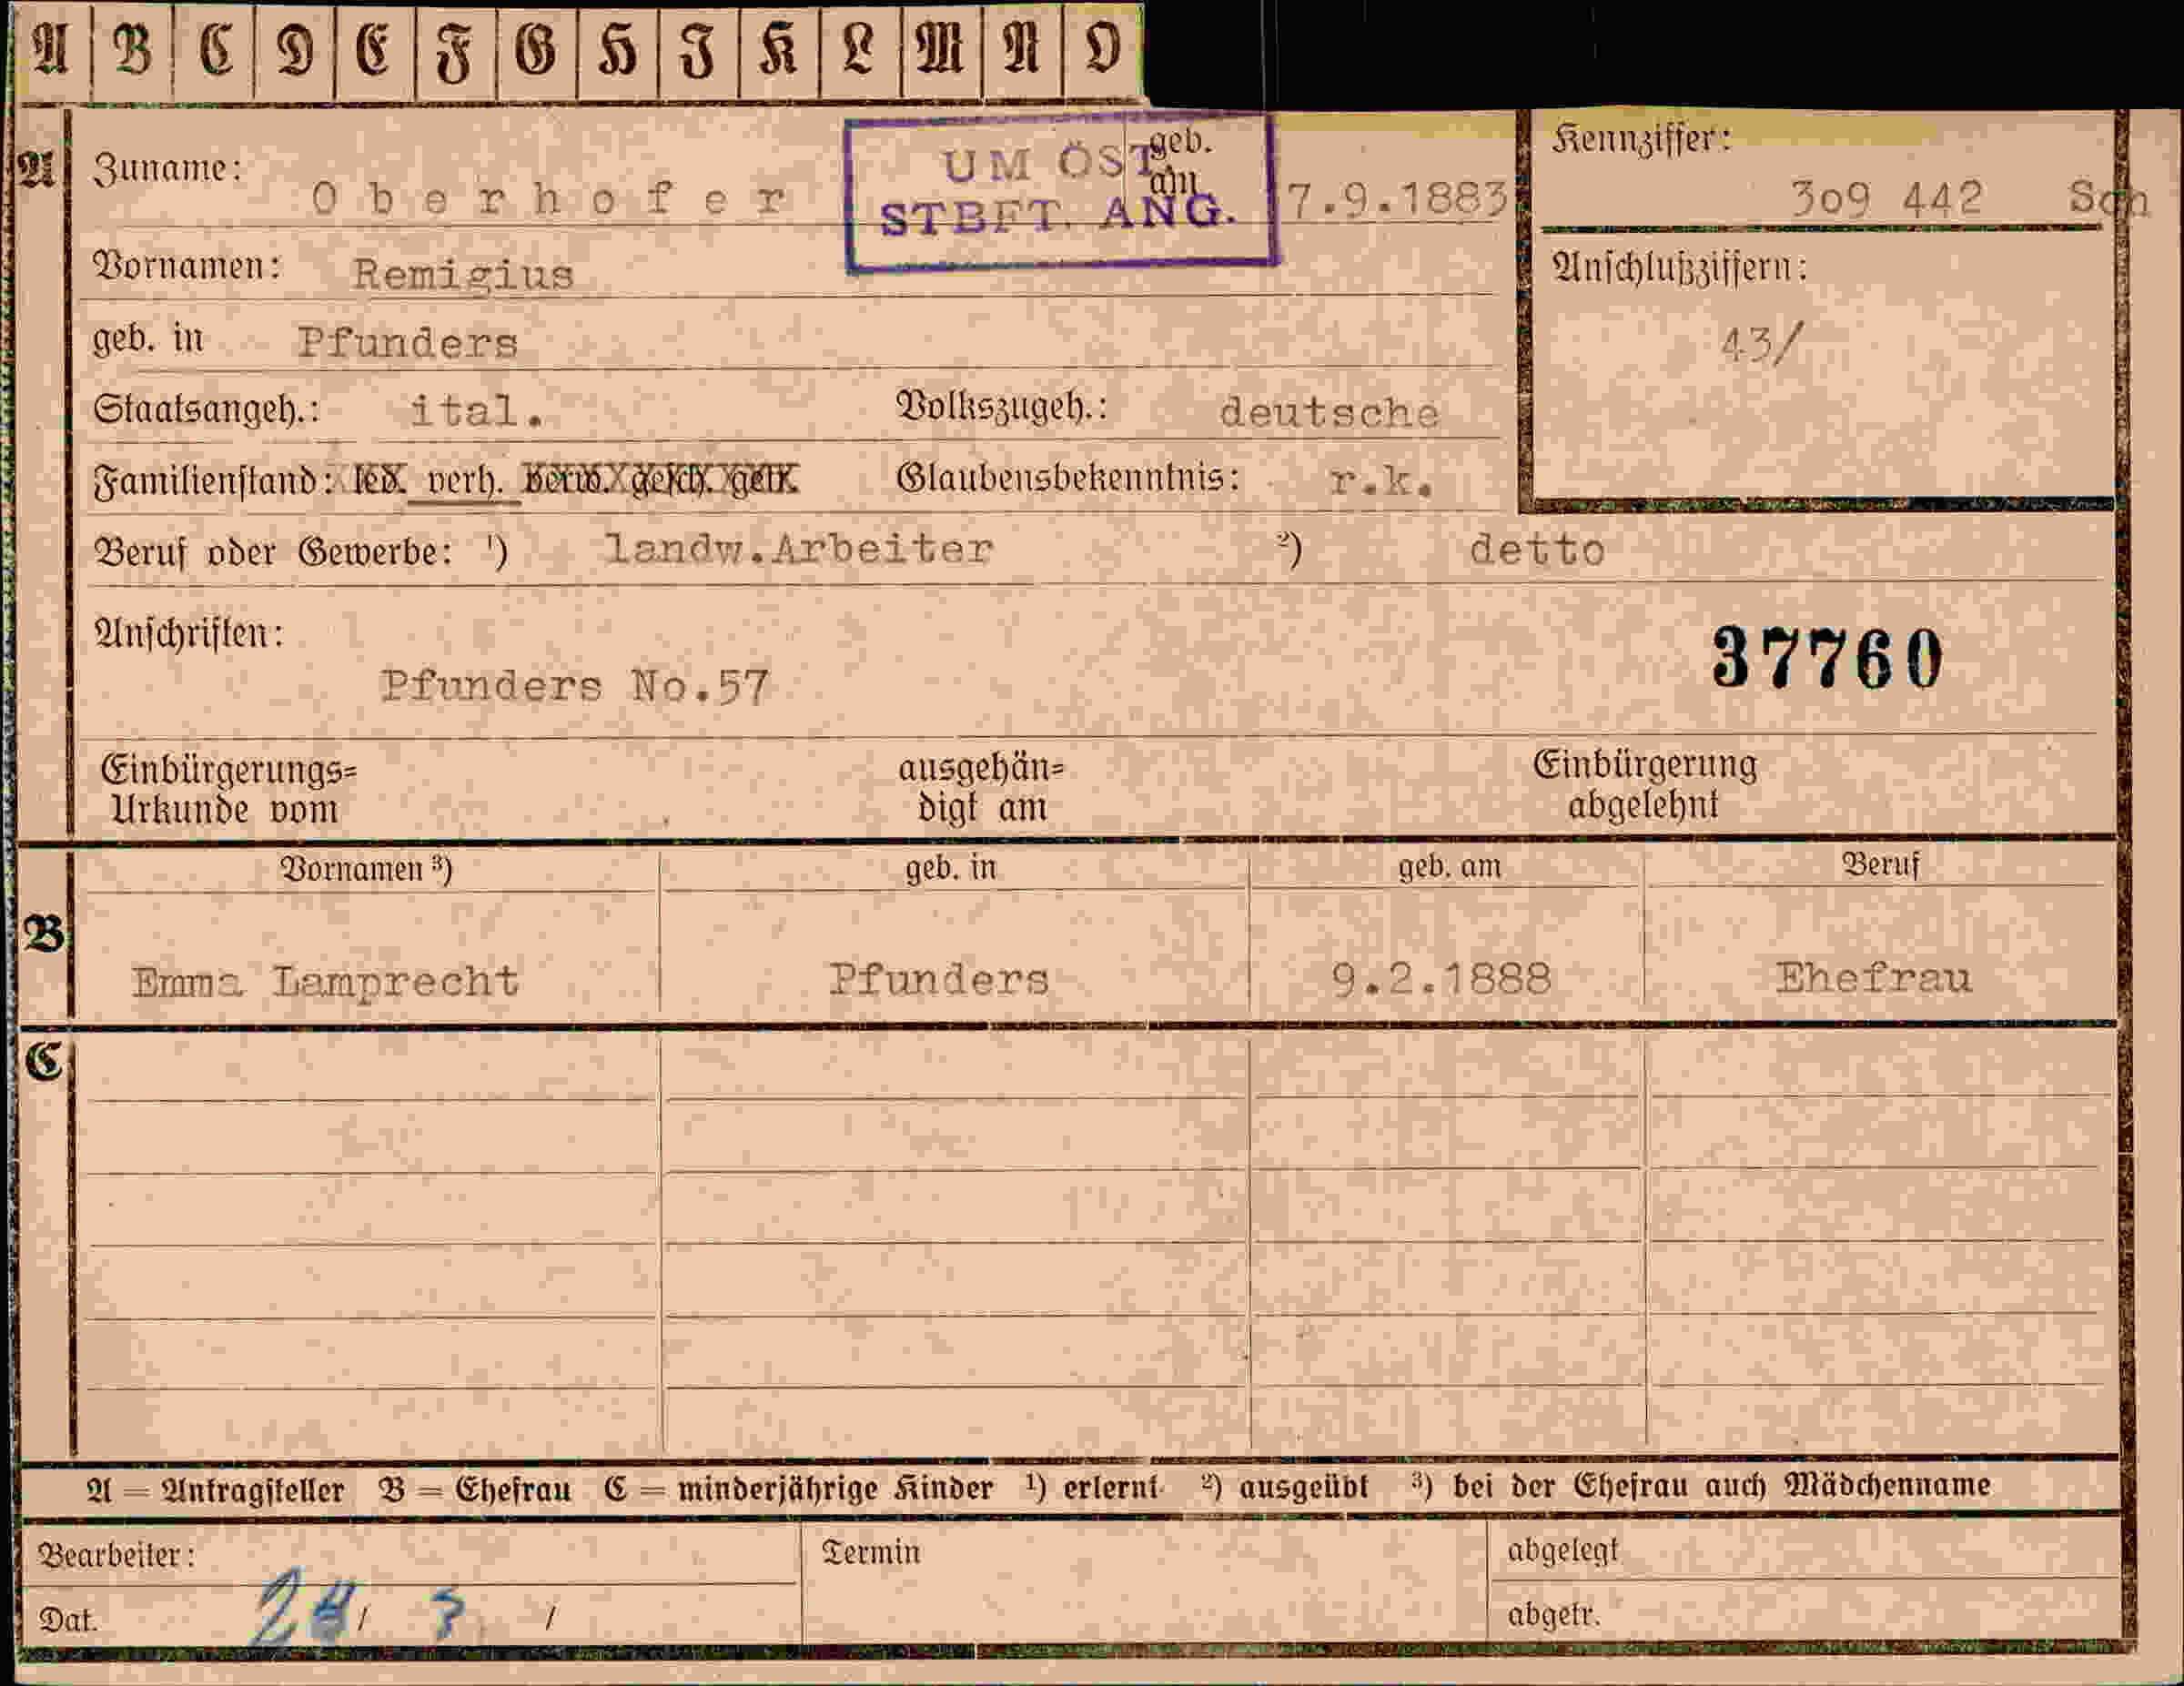 A B C D E F G H I K L M N O
A Zuname: Oberhofer geb. am 7.9.1883
UM ÖST.
STBFT. ANG.
Kennziffer:
309 442 Sch
Vornamen: Remigius
Anschlußziffern:
43/
geb. in Pfunders
Staatsangeh.: ital. Volkszugeh.: deutsche
Familienstand: led. verh. verw. gesch. getr. Glaubensbekenntnis: r.k.
Beruf oder Gewerbe: ¹) landw.Arbeiter ²) detto
Anschriften:
37760
Pfunders No.57
Einbürgerungs= ausgehän= Einbürgerung
Urkunde vom digt am abgelehnt
Vornamen ³) geb. in geb. am Beruf
B
Emma Lamprecht Pfunders 9.2.1888 Ehefrau
C
A = Antragsteller B = Ehefrau C = minderjährige Kinder ¹) erlernt ²) ausgeübt ³) bei der Ehefrau auch Mädchenname
Bearbeiter: Termin abgelegt
Dat. / / abgetr.